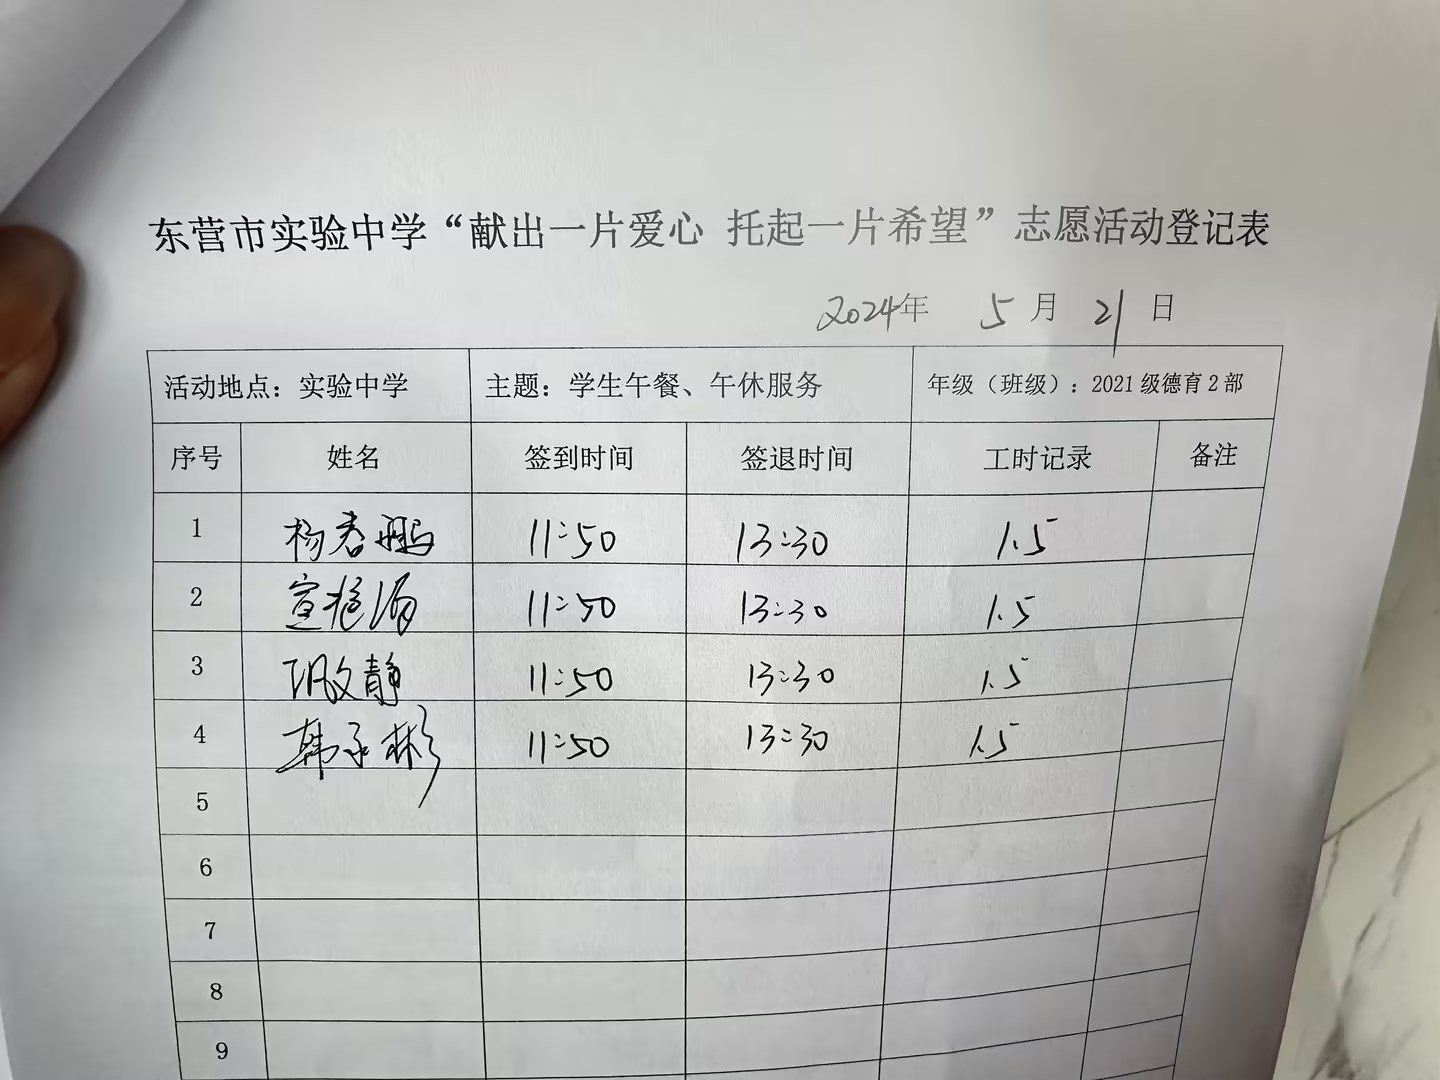 东营市实验中学“献出一片爱心 托起一片希望”志愿活动登记表
2024年 5 月 21 日
活动地点：实验中学 主题：学生午餐、午休服务 年级（班级）：2021 级德育 2 部
序号 姓名 签到时间 签退时间 工时记录 备注
1 杨春鹏 11:50 13:30 1.5
2 宣艳 11:50 13:30 1.5
3 巩文静 11:50 13:30 1.5
4 韩彬 11:50 13:30 1.5
5
6
7
8
9